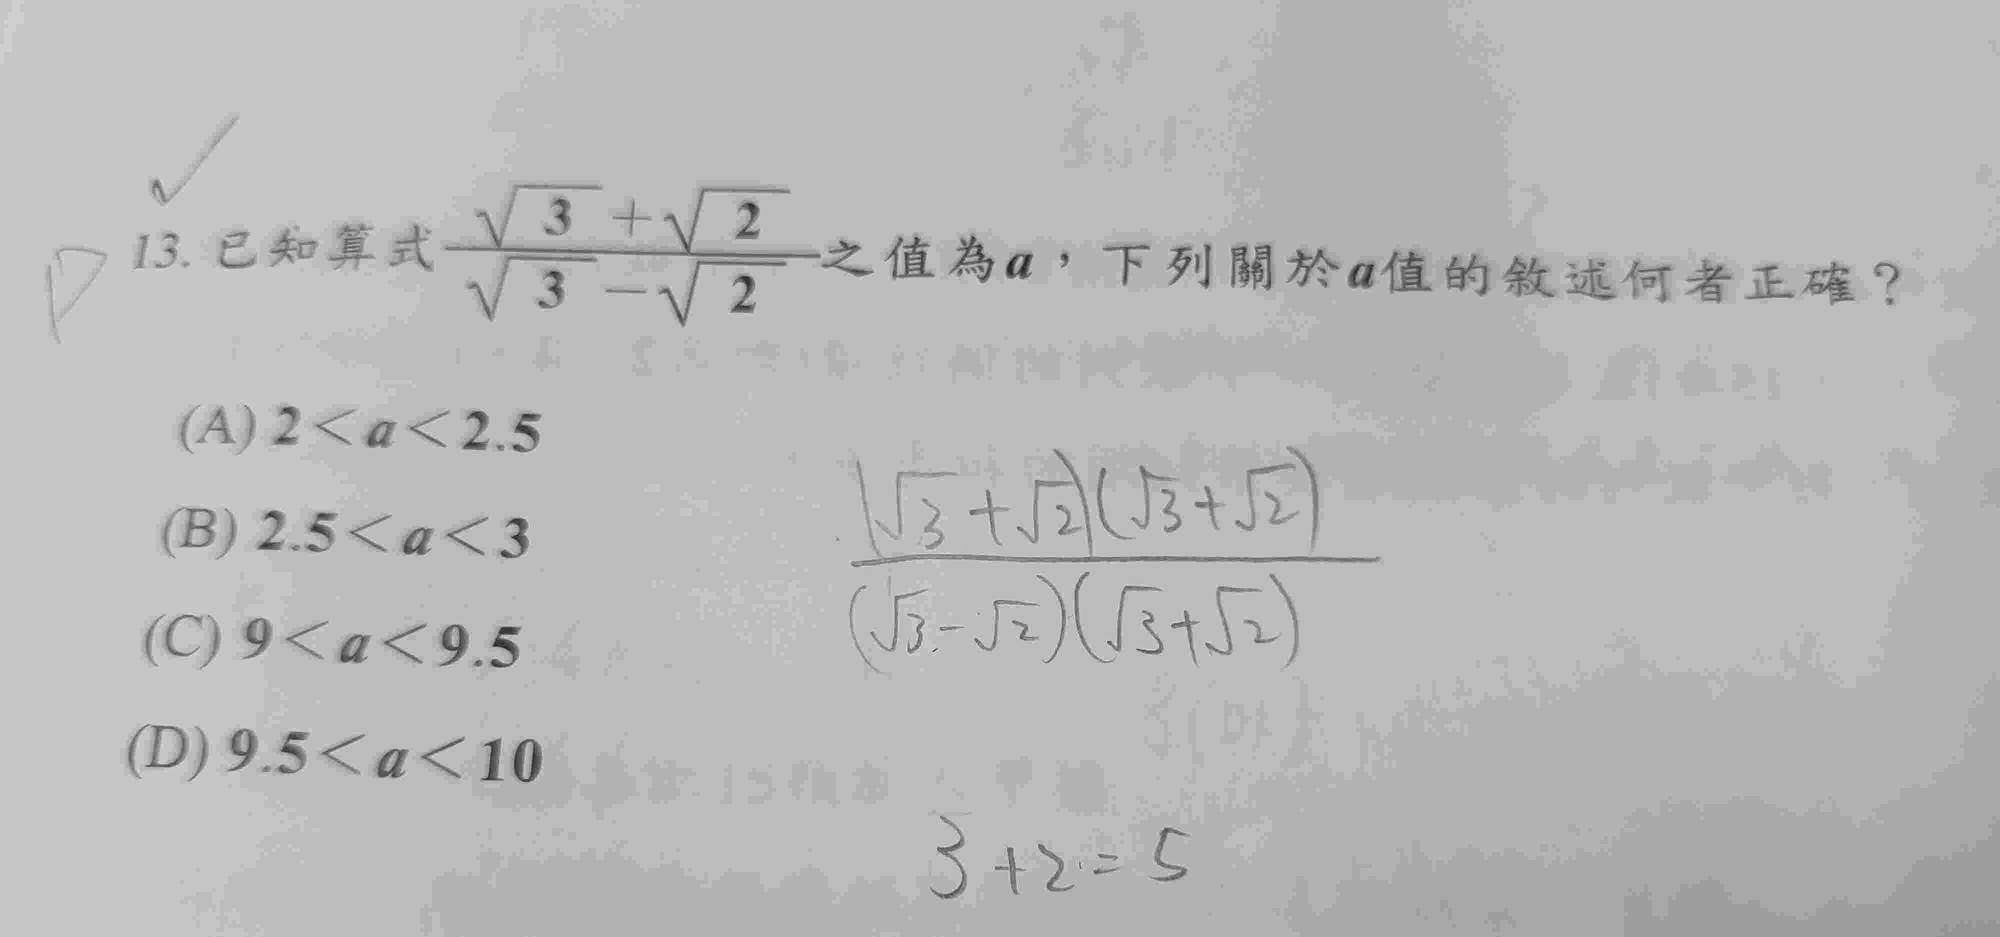 ✓
D 13. 已知算式 (√3+√2)/(√3−√2) 之值為a，下列關於a值的敘述何者正確？
(A) 2＜a＜2.5
(B) 2.5＜a＜3
(C) 9＜a＜9.5
(D) 9.5＜a＜10
(√3+√2)(√3+√2)
(√3-√2)(√3+√2)
3+2=5